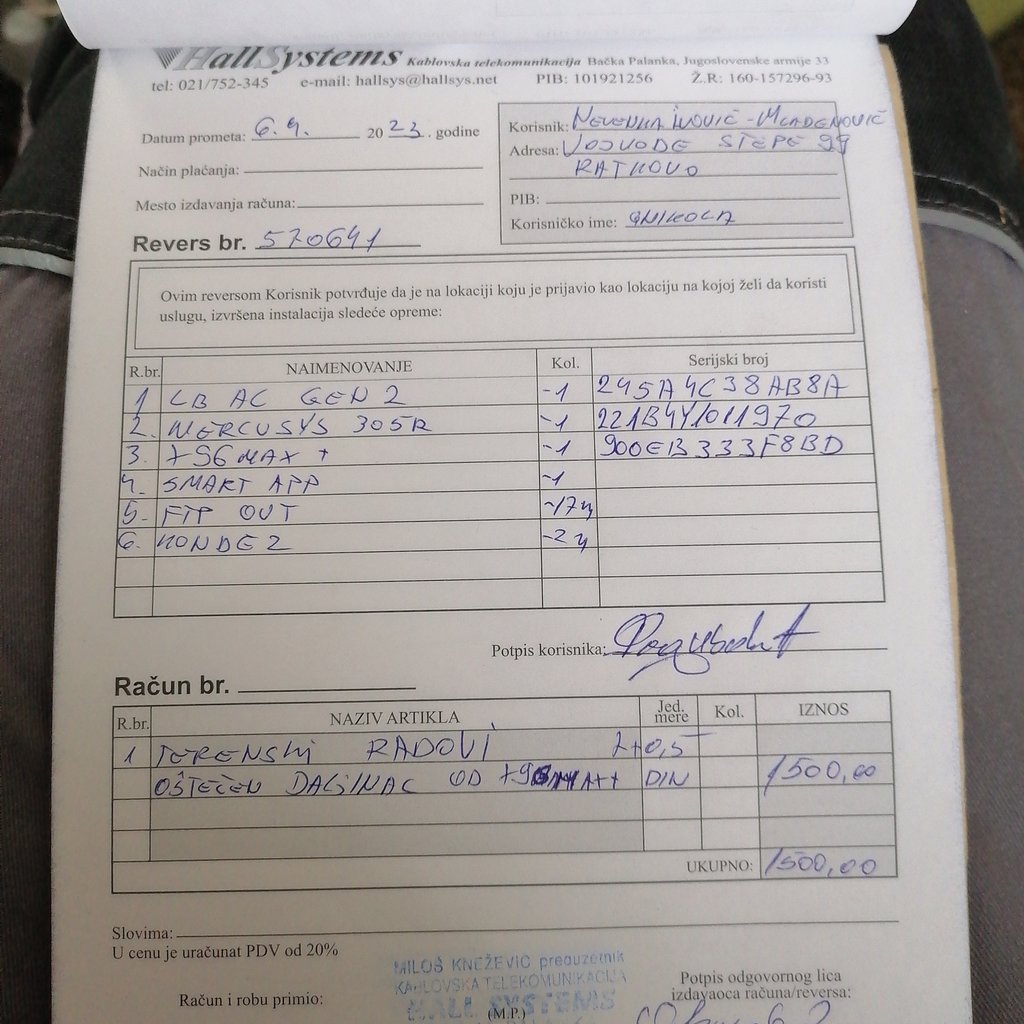 HallSystems Kablovska telekomunikacija Bačka Palanka, Jugoslovenske armije 33
tel: 021/752-345 e-mail: hallsys@hallsys.net PIB: 101921256 Ž.R: 160-157296-93
Datum prometa: 6.9. 2023. godine
Korisnik: NEVENKA IVOVIĆ-MLADENOVIĆ
Adresa: VOJVODE STEPE 99
RATKOVO
Način plaćanja:
PIB:
Mesto izdavanja računa:
Korisničko ime: GNIKOLA
Revers br. 570641
Ovim reversom Korisnik potvrđuje da je na lokaciji koju je prijavio kao lokaciju na kojoj želi da koristi
uslugu, izvršena instalacija sledeće opreme:
R.br. NAIMENOVANJE Kol. Serijski broj
1 LB AC GEN 2 -1 245A4C38AB8A
2. MERCUSYS 305R -1 221B4Y1011970
3. +96MAX + -1 900EB333F8BD
4. SMART APP -1
5. FTP OUT -17m
6. KONDEZ -2m
Potpis korisnika:
Račun br.
R.br. NAZIV ARTIKLA Jed. mere Kol. IZNOS
1 TERENSKI RADOVI 2+0,5
OŠTEĆEN DALJINAC OD DIN 1500,00
UKUPNO: 1500,00
Slovima:
U cenu je uračunat PDV od 20%
MILOŠ KNEŽEVIĆ preduzetnik
KABLOVSKA TELEKOMUNIKACIJA
HALL SYSTEMS
Račun i robu primio: (M.P.)
Potpis odgovornog lica
izdavaoca računa/reversa: